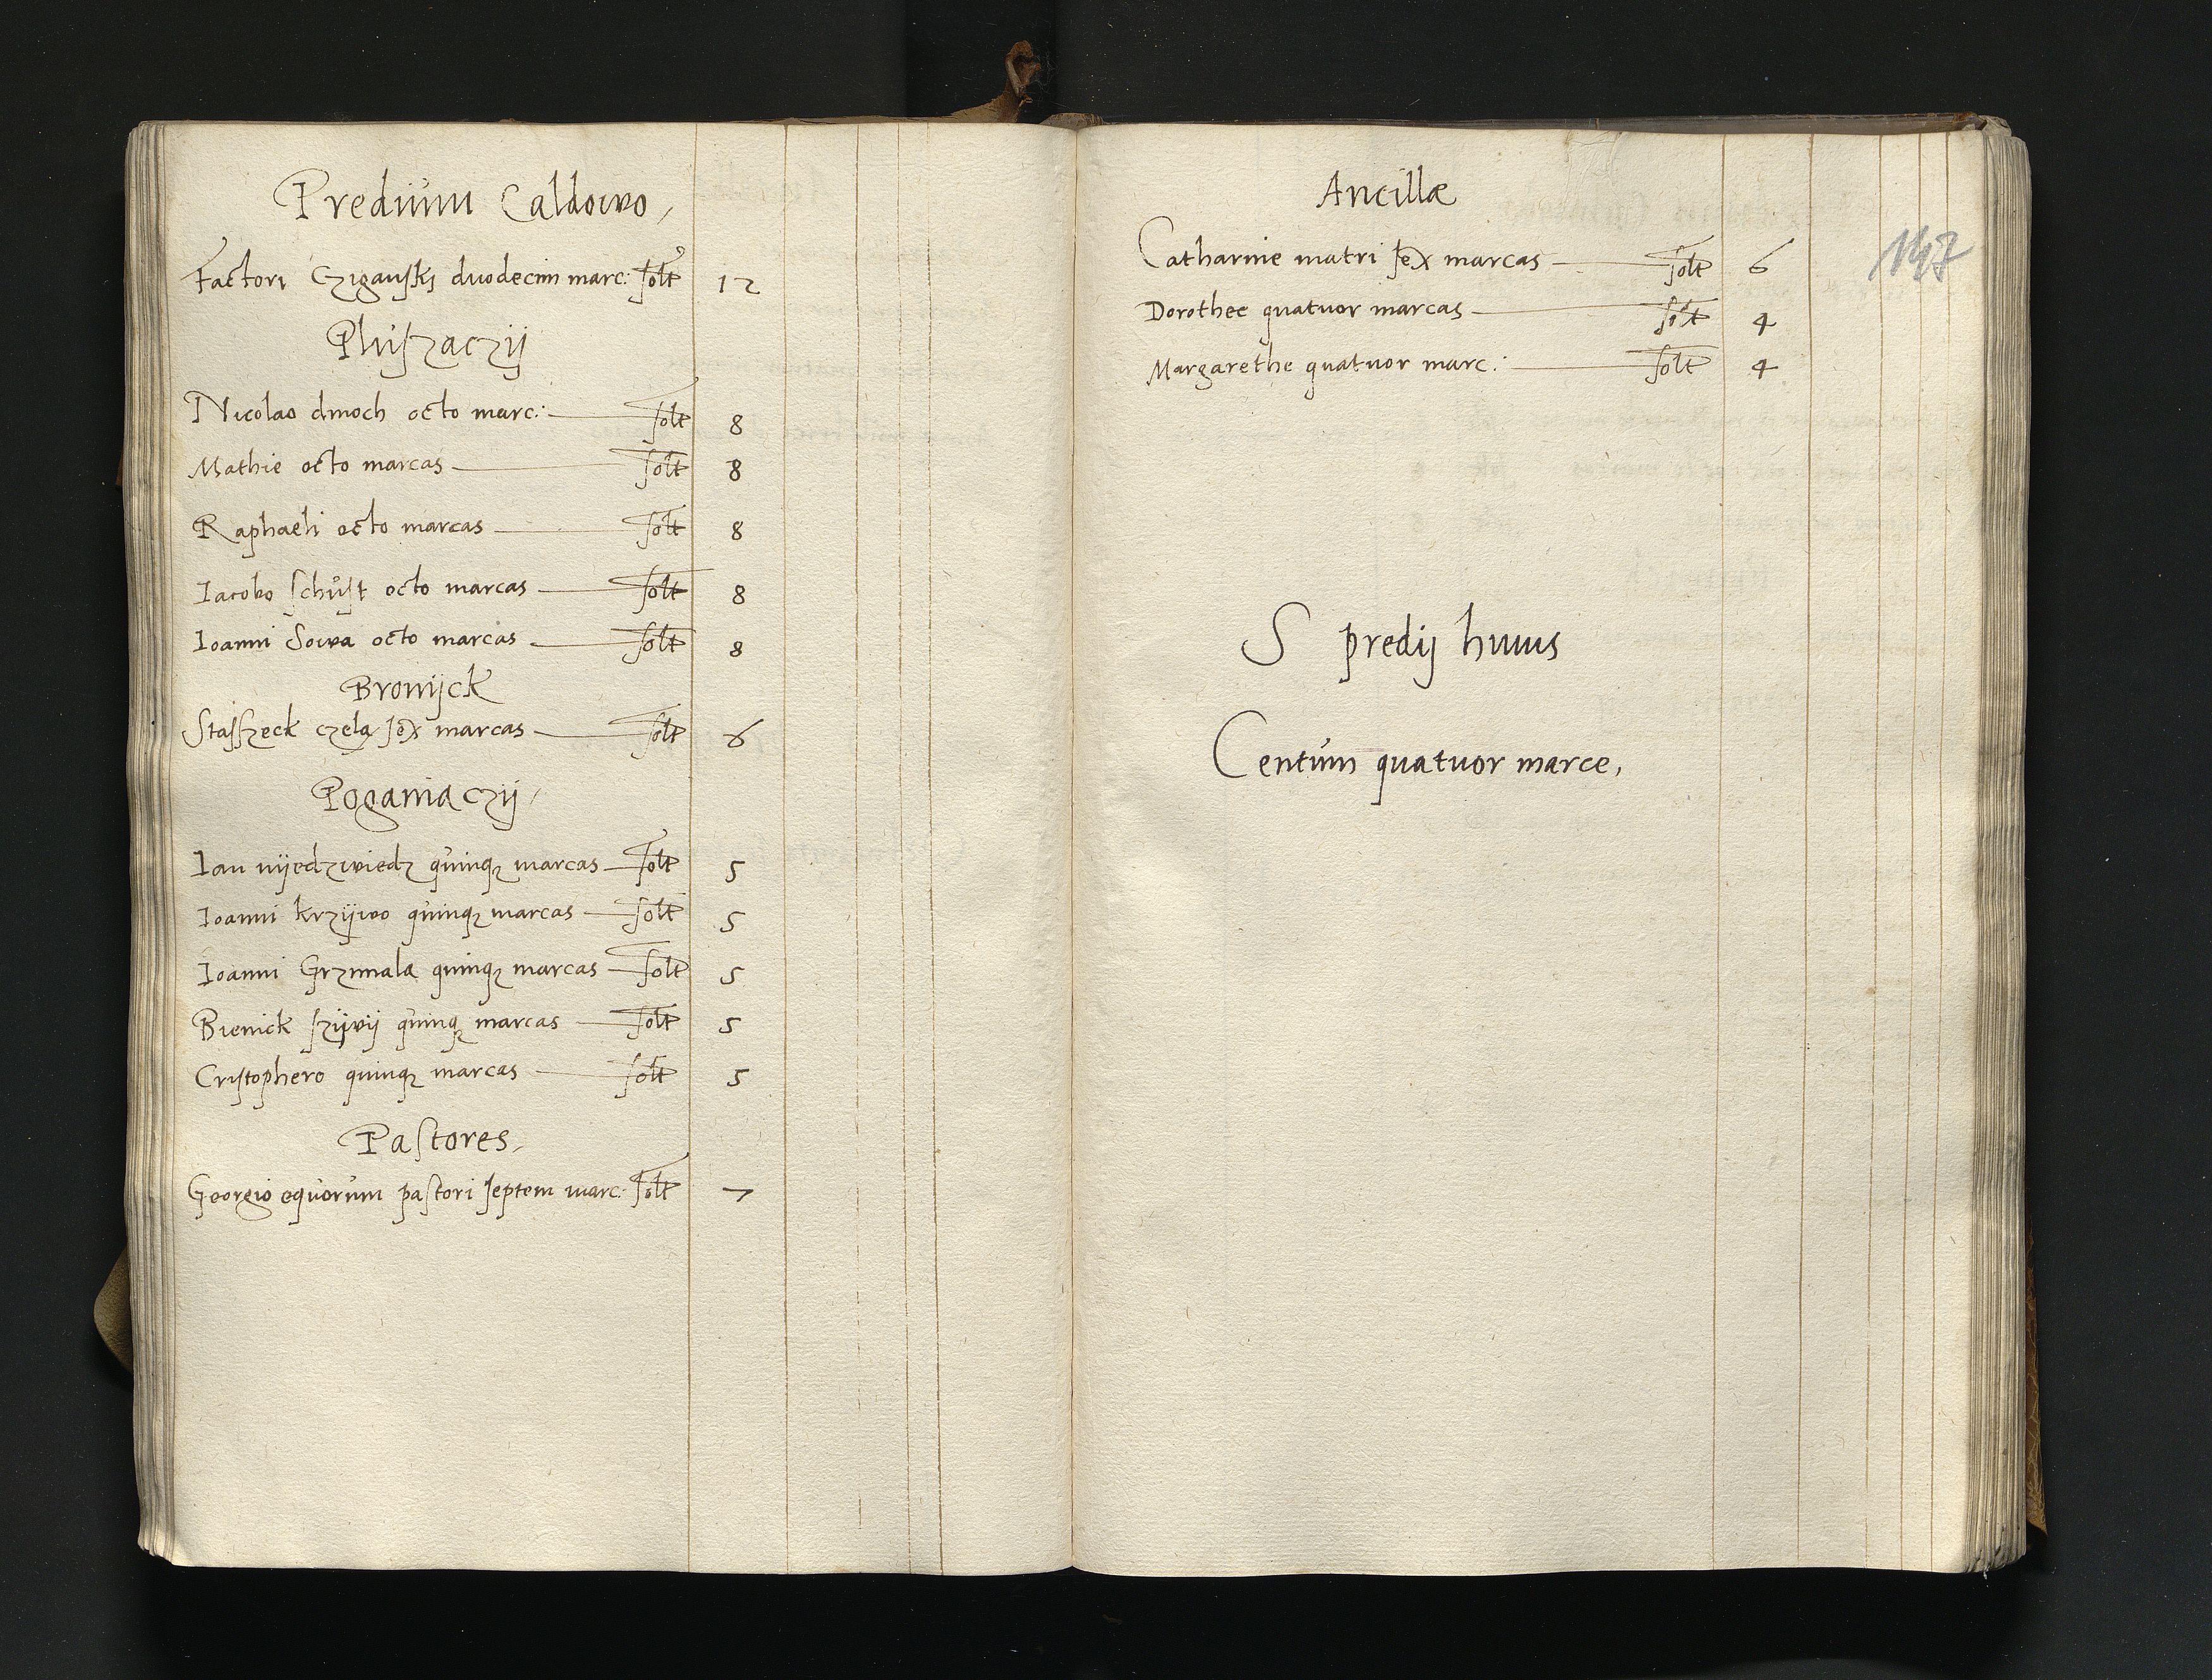 Predium Caldowo,
Factori Czigański duodecim marc: solt 12
Pluszaczÿ
Nicolao dmoch octo marc: solt 8
Mathie octo marcas solt 8
Raphaeli octo marcas solt 8
Iacobo schust octo marcas solt 8
Ioanni Sowa octo marcas solt 8
Bronÿck
Staszeck czela sex marcas solt 6
Poganiaczÿ
Ian nÿedzwiedz quinqꝫ marcas solt 5
Ioanni krzÿwo quinqꝫ marcas solt 5
Ioanni Grzimala quinqꝫ marcas solt 5
Bienick szÿwÿ quinqꝫ marcas solt 5
Cristophero quinqꝫ marcas solt 5
Pastores,
Georgio equorum pastori septem marc: solt 7
Ancillæ
Catharine matri sex marcas solt 6
147
Dorothee quatuor marcas solt 4
Margarethe quatuor marc: solt 4
S predij huius
Centum quatuor marce,